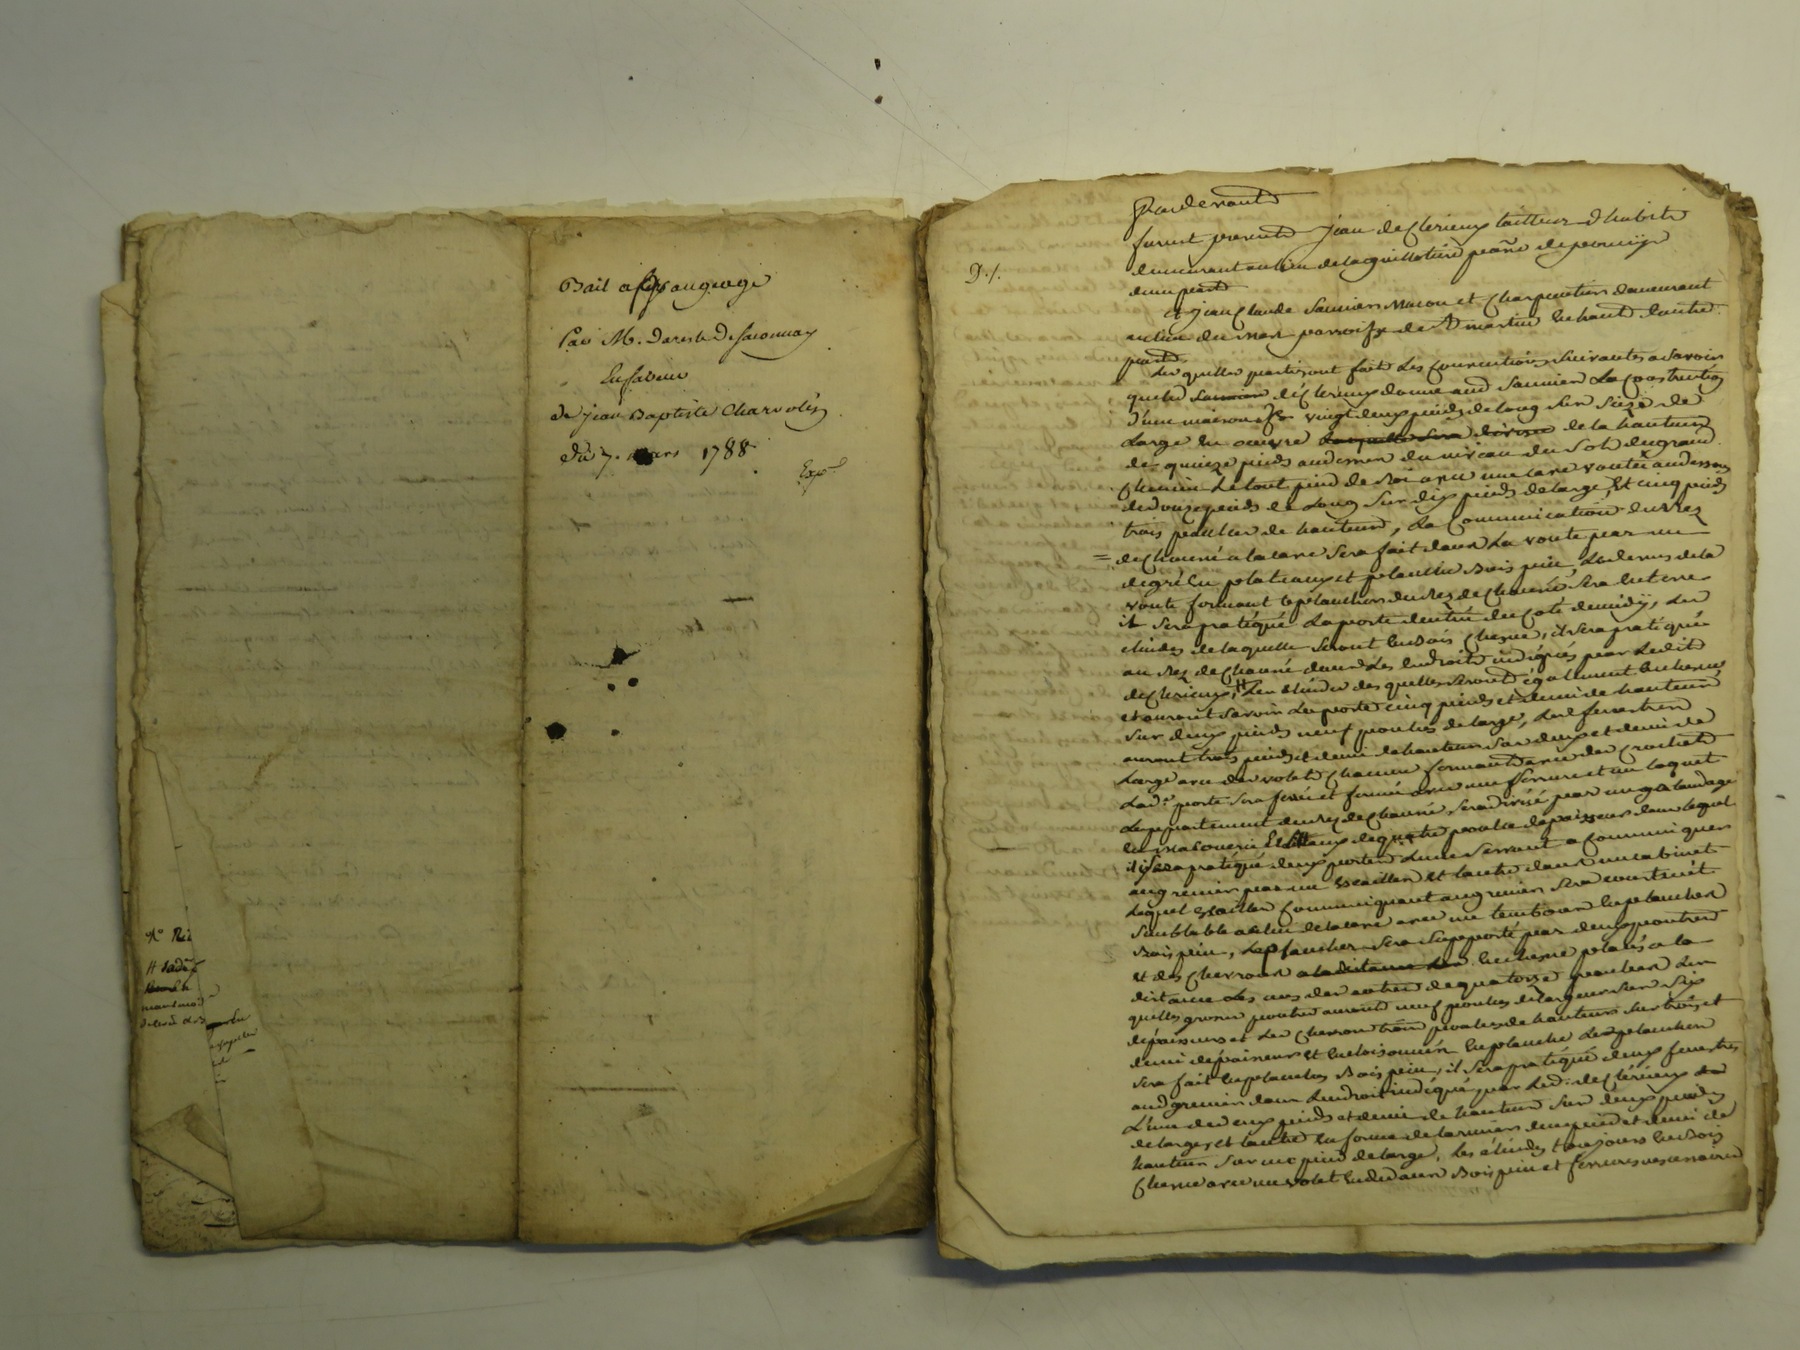 Bail a grangeage
Par M. Dareste De Saconnay
En faveur
de jean Baptiste Charvolin
Du 7. mars 1788
Exp.
D./.
Pardevant
furent presents jean de Clerieux tailleur d'habits
demeurant au lieu de la guillotiere
d'une part
et jean Claude Saunier Macon et Charpentier demeurant
au lieu du parroisse de St martin en haut d'autre
part
Les quelles parties ont fait les Conventions suivantes a Savoir
que led de Clerieux donne aud Saunier La Construction
d'une maison de vingt deux pieds de long sur seize de
Large en oeuvre laquelle sera divisée de la hauteur
de quinze pieds au dessus du niveau du Sol du grand
Chemin Le tout pied de Roi avec une cave voutée au dessous
de douze pieds de Long sur dix pieds de large, et cinq pieds
trois pouces de hauteur, La Communication du Rez
de Chaussé a la cave sera fait dans La voute par un
degré en plateaux et planches Bois pin, Le dessus de la
voute formant le plancher du Rez de Chaussé sera en terre
il sera pratiqué La porte d'entrée du coté du midy, Les
etuides de laquelle seront en Bois Chesne, il sera pratiqué
au Rez de Chaussé dans Les Endroits indiqués par Ledit
de Clerieux, # Les etuides des quelles seront également en chesne
et auront savoir La porte cinq pieds et demi de hauteur
sur deux pieds neuf pouces de large, Les fenestres
auront trois pieds et demi de hauteur sur deux et demi de
Large avec des volets Chacune fermant avec des Crochets
Lad.e porte sera ferrée et fermée avec une serrure et un Loquet
L'appartement du Rez de Chaussé, sera divisé par un galandage
en massonerie de quatre pouces d'epaisseur dans lequel
il sera pratiqué deux portes L'une servant a Communiquer
au grenier par un Escaillier et l'autre dans un cabinet
Lequel Escaillier Communiquant au grenier sera construit
semblable a celui de la cave avec un tambour en planches
Bois pin, Le plancher sera supporté par deux poutres
et des chevrons a la distance des en chesne placés a la
distance Les uns des autres de quatorze pouces Les
quelles grosses poutres auront neuf pouces de largeur sur six
d'épaisseur et Les chevrons trois pouces de hauteur sur trois et
demi d'épaisseur et en planche Le plancher
sera fait en planches Bois pin, il sera pratiqué deux fenestres
aud grenier dans L'endroit indiqué par Led. de Clérieux
L'une de deux pieds et demi de hauteur sur deux pieds
de large, et l'autre en forme de Larmier d'un pied et demi de
hauteur sur un pied de large, Les étuides toujours en Bois
Chesne avec un volet en dedans Bois pin et ferrures necessaires